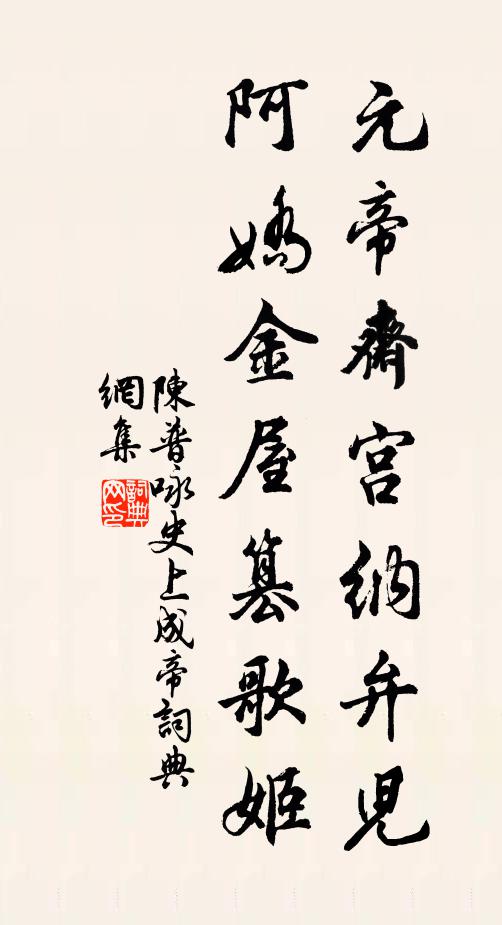 元帝齋宮納弁児
阿嬌金屋篡歌姬
陳普咏史上成帝詞典
網集
詞典網印